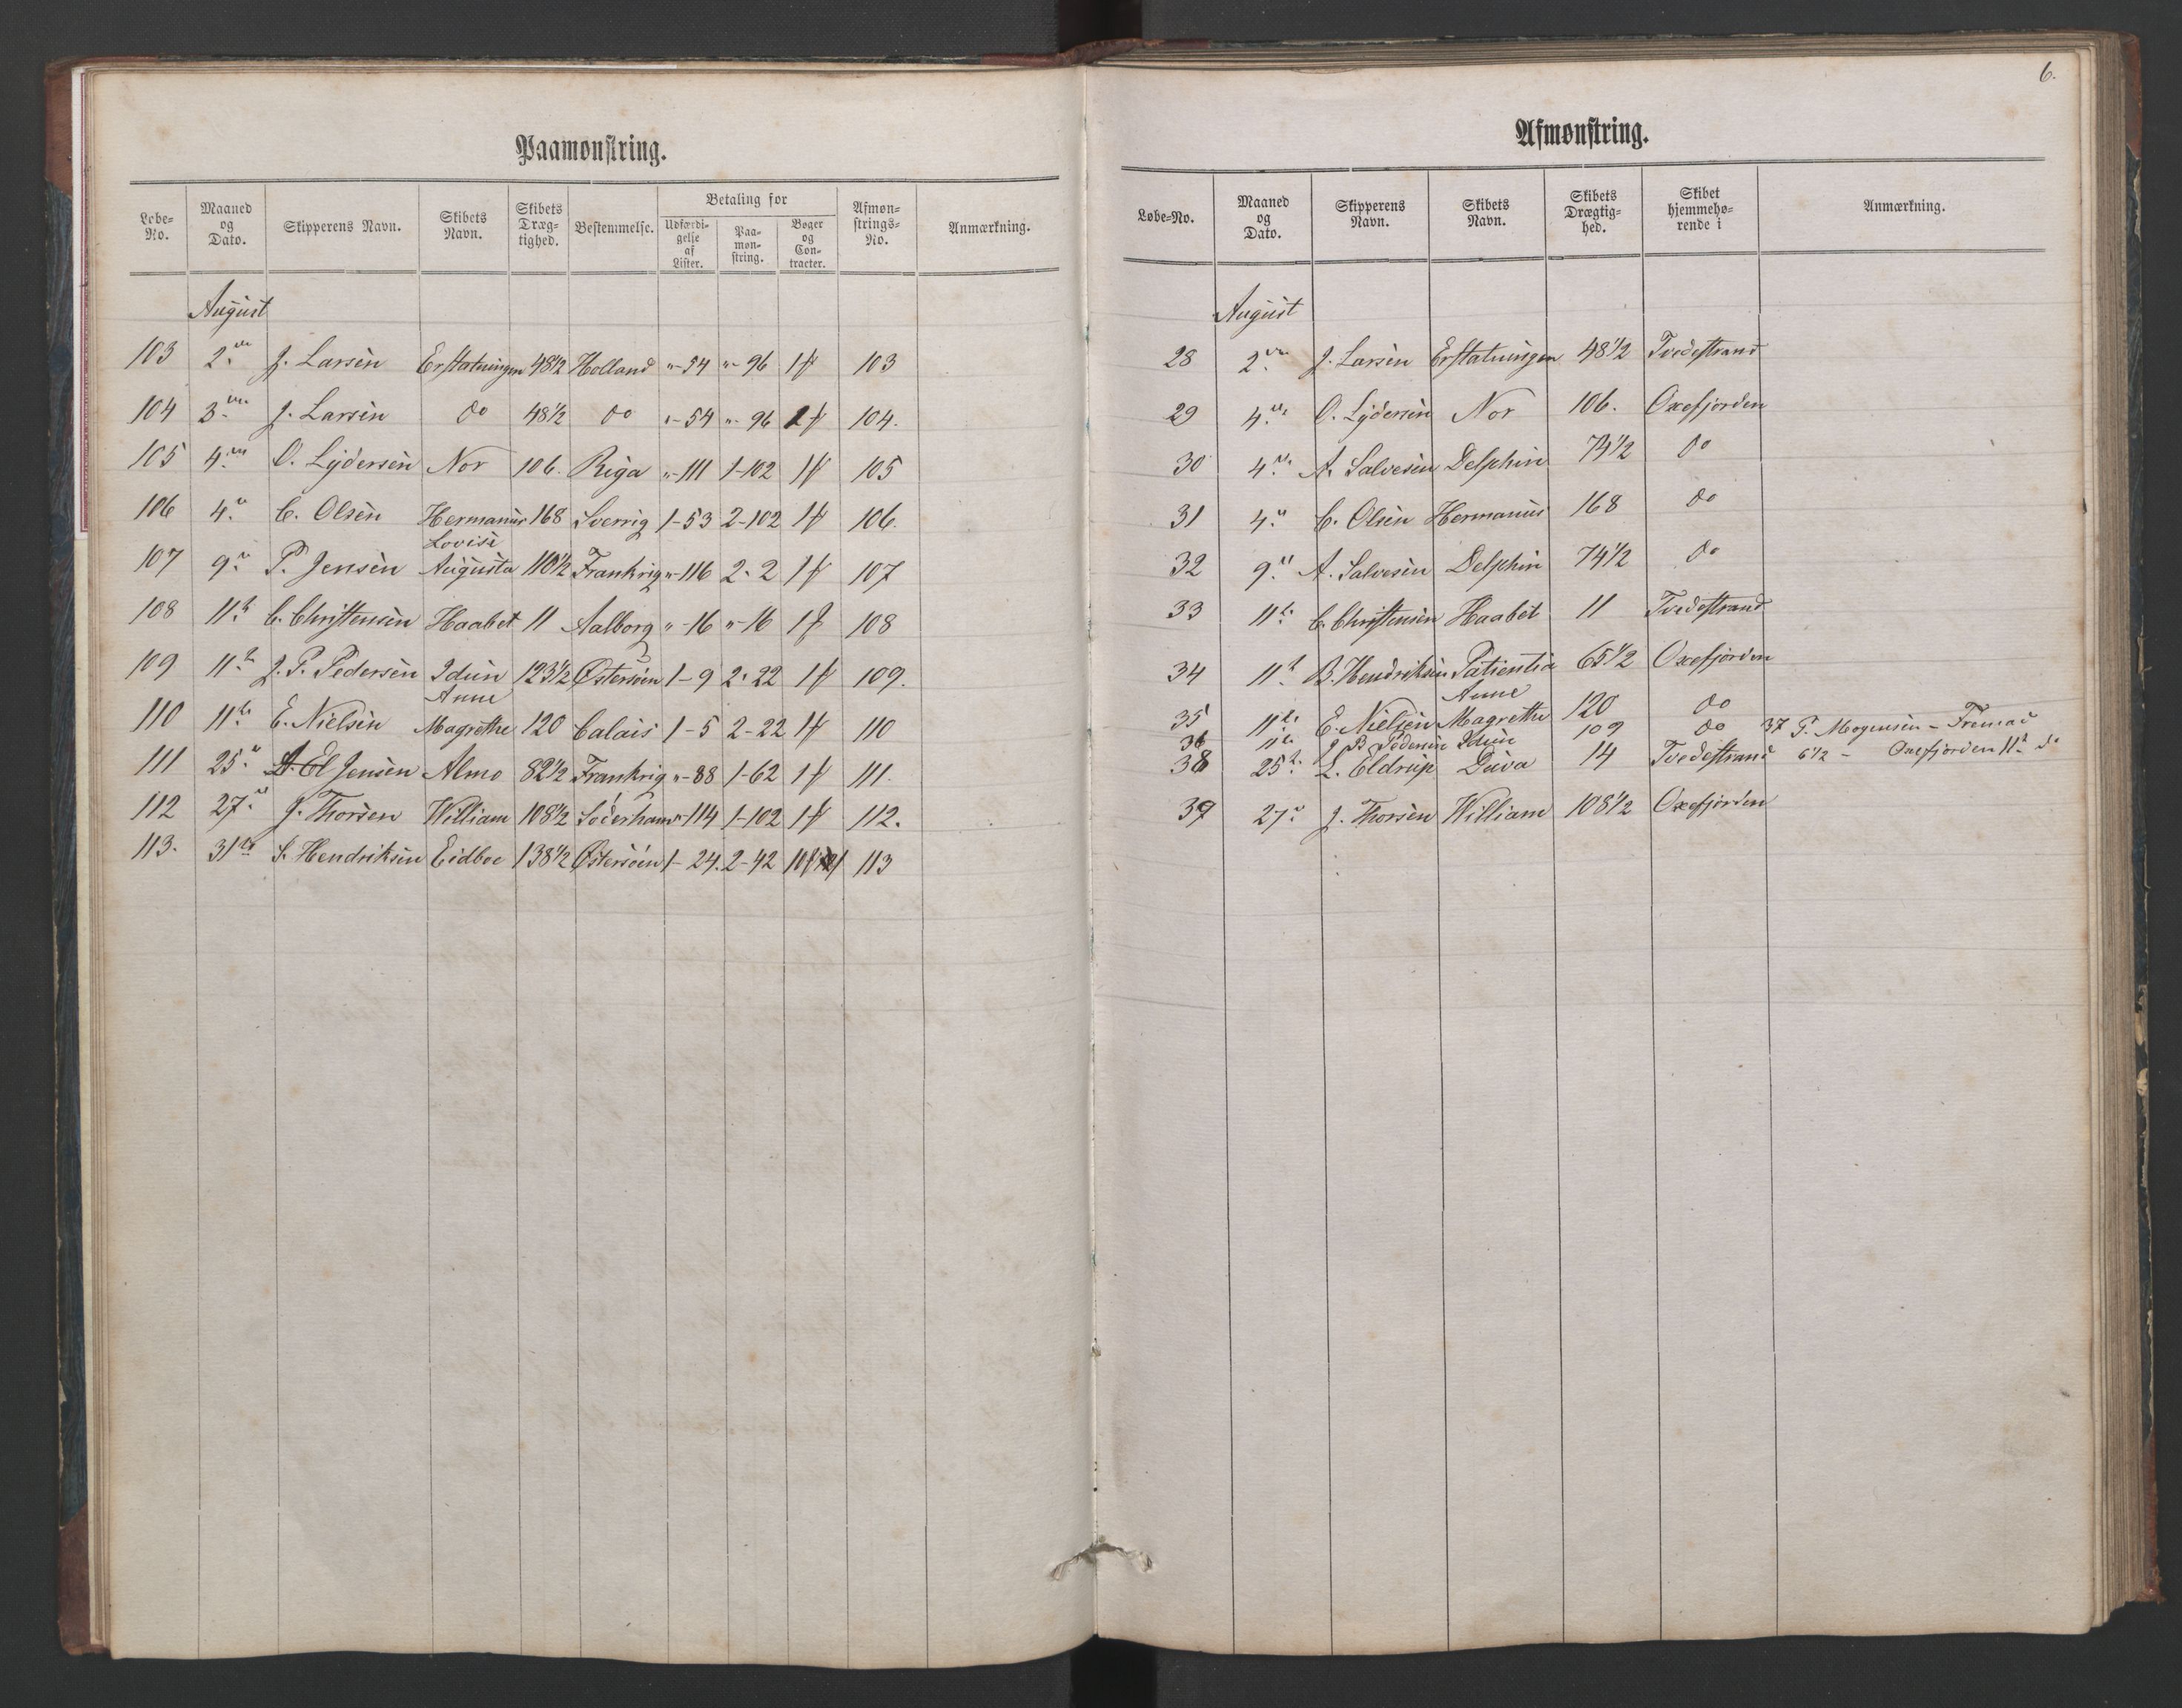 6.
Paamønstring.
Løbe-No. Maaned og Dato. Skipperens Navn. Skibets Navn. Skibets Dræg-tighed. Bestemmelse. Betaling for Udfærdi-gelse af Lister. Paa-møn-string. Bøger og Con-tracter. Afmøn-strings-No. Anmærkning.
August
103 2 J. Larsen Erstatningen 48 1/2 Holland "-54 "-96 1 103
104 3 J. Larsen do 48 1/2 do "-54 "-96 104.
105 4 O. Lydersen Nor 106. Riga "-111 1-102 1 105
106 4 C. Olsen Hermanus 168 Sverrig 1-53 2-102 1 106.
107 9 P. Jensen Lovise Augusta 110 1/2 Frankrig "-116 2-2 1 107
108 11 C. Christensen Haabet 11 Aalborg "-16 "-16 1 108
109 11 J. P. Pedersen Idun 123 1/2 Østersøen 1-9 2-22 1 109.
110 11 E. Nielsen Anne Magrethe 120 Calais 1-5 2-22 1 110
111 25 Jensen Almo 82 1/2 Frankrig "-88 1-62 1 111.
112 27 J. Thorsen William 108 1/2 Söderhamn "-114 1-102 1 112.
113. 31 S. Hendriksen Eidboe 138 1/2 Østersøen 1-24. 2-42 113
Afmønstring.
Løbe-No. Maaned og Dato. Skipperens Navn. Skibets Navn. Skibets Drægtig-hed. Skibet hjemmehø-rende i Anmærkning.
August
28 2 J. Larsen Erstatningen 48 1/2 Tvedestrand
29 4 O. Lydersen Nor 106. Oxefjorden
30 4 A. Salvesen Delphin 74 1/2 do
31 4 C. Olsen Hermanus 168 do
32 9 A. Salvesen Delphin 74 1/2 do
33 11 C. Christensen Haabet 11 Tvedestrand
34 11 B. Hendriksen Patientia 65 1/2 Oxefjorden
35 11 E. Nielsen Anne Magrethe 120 do
36 11 J. P. Pedersen Idun 109 do 37 P. Mogensen - Fremad
38 25 L. Eldrup Duva 14 Tvedestrand 6 1/2 - Oxefjorden 11 ds
39 27 J. Thorsen William 108 1/2 Oxefjorden